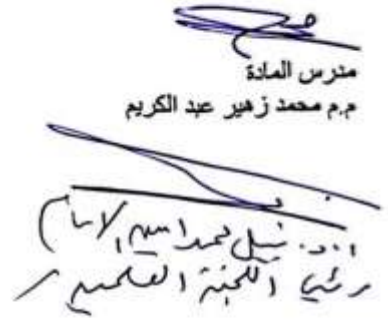 مدرس المادة
م.م محمد زهير عبد الكريم
ا.د. نبيل محمد امين الامام
رئيس اللجنة العلمية